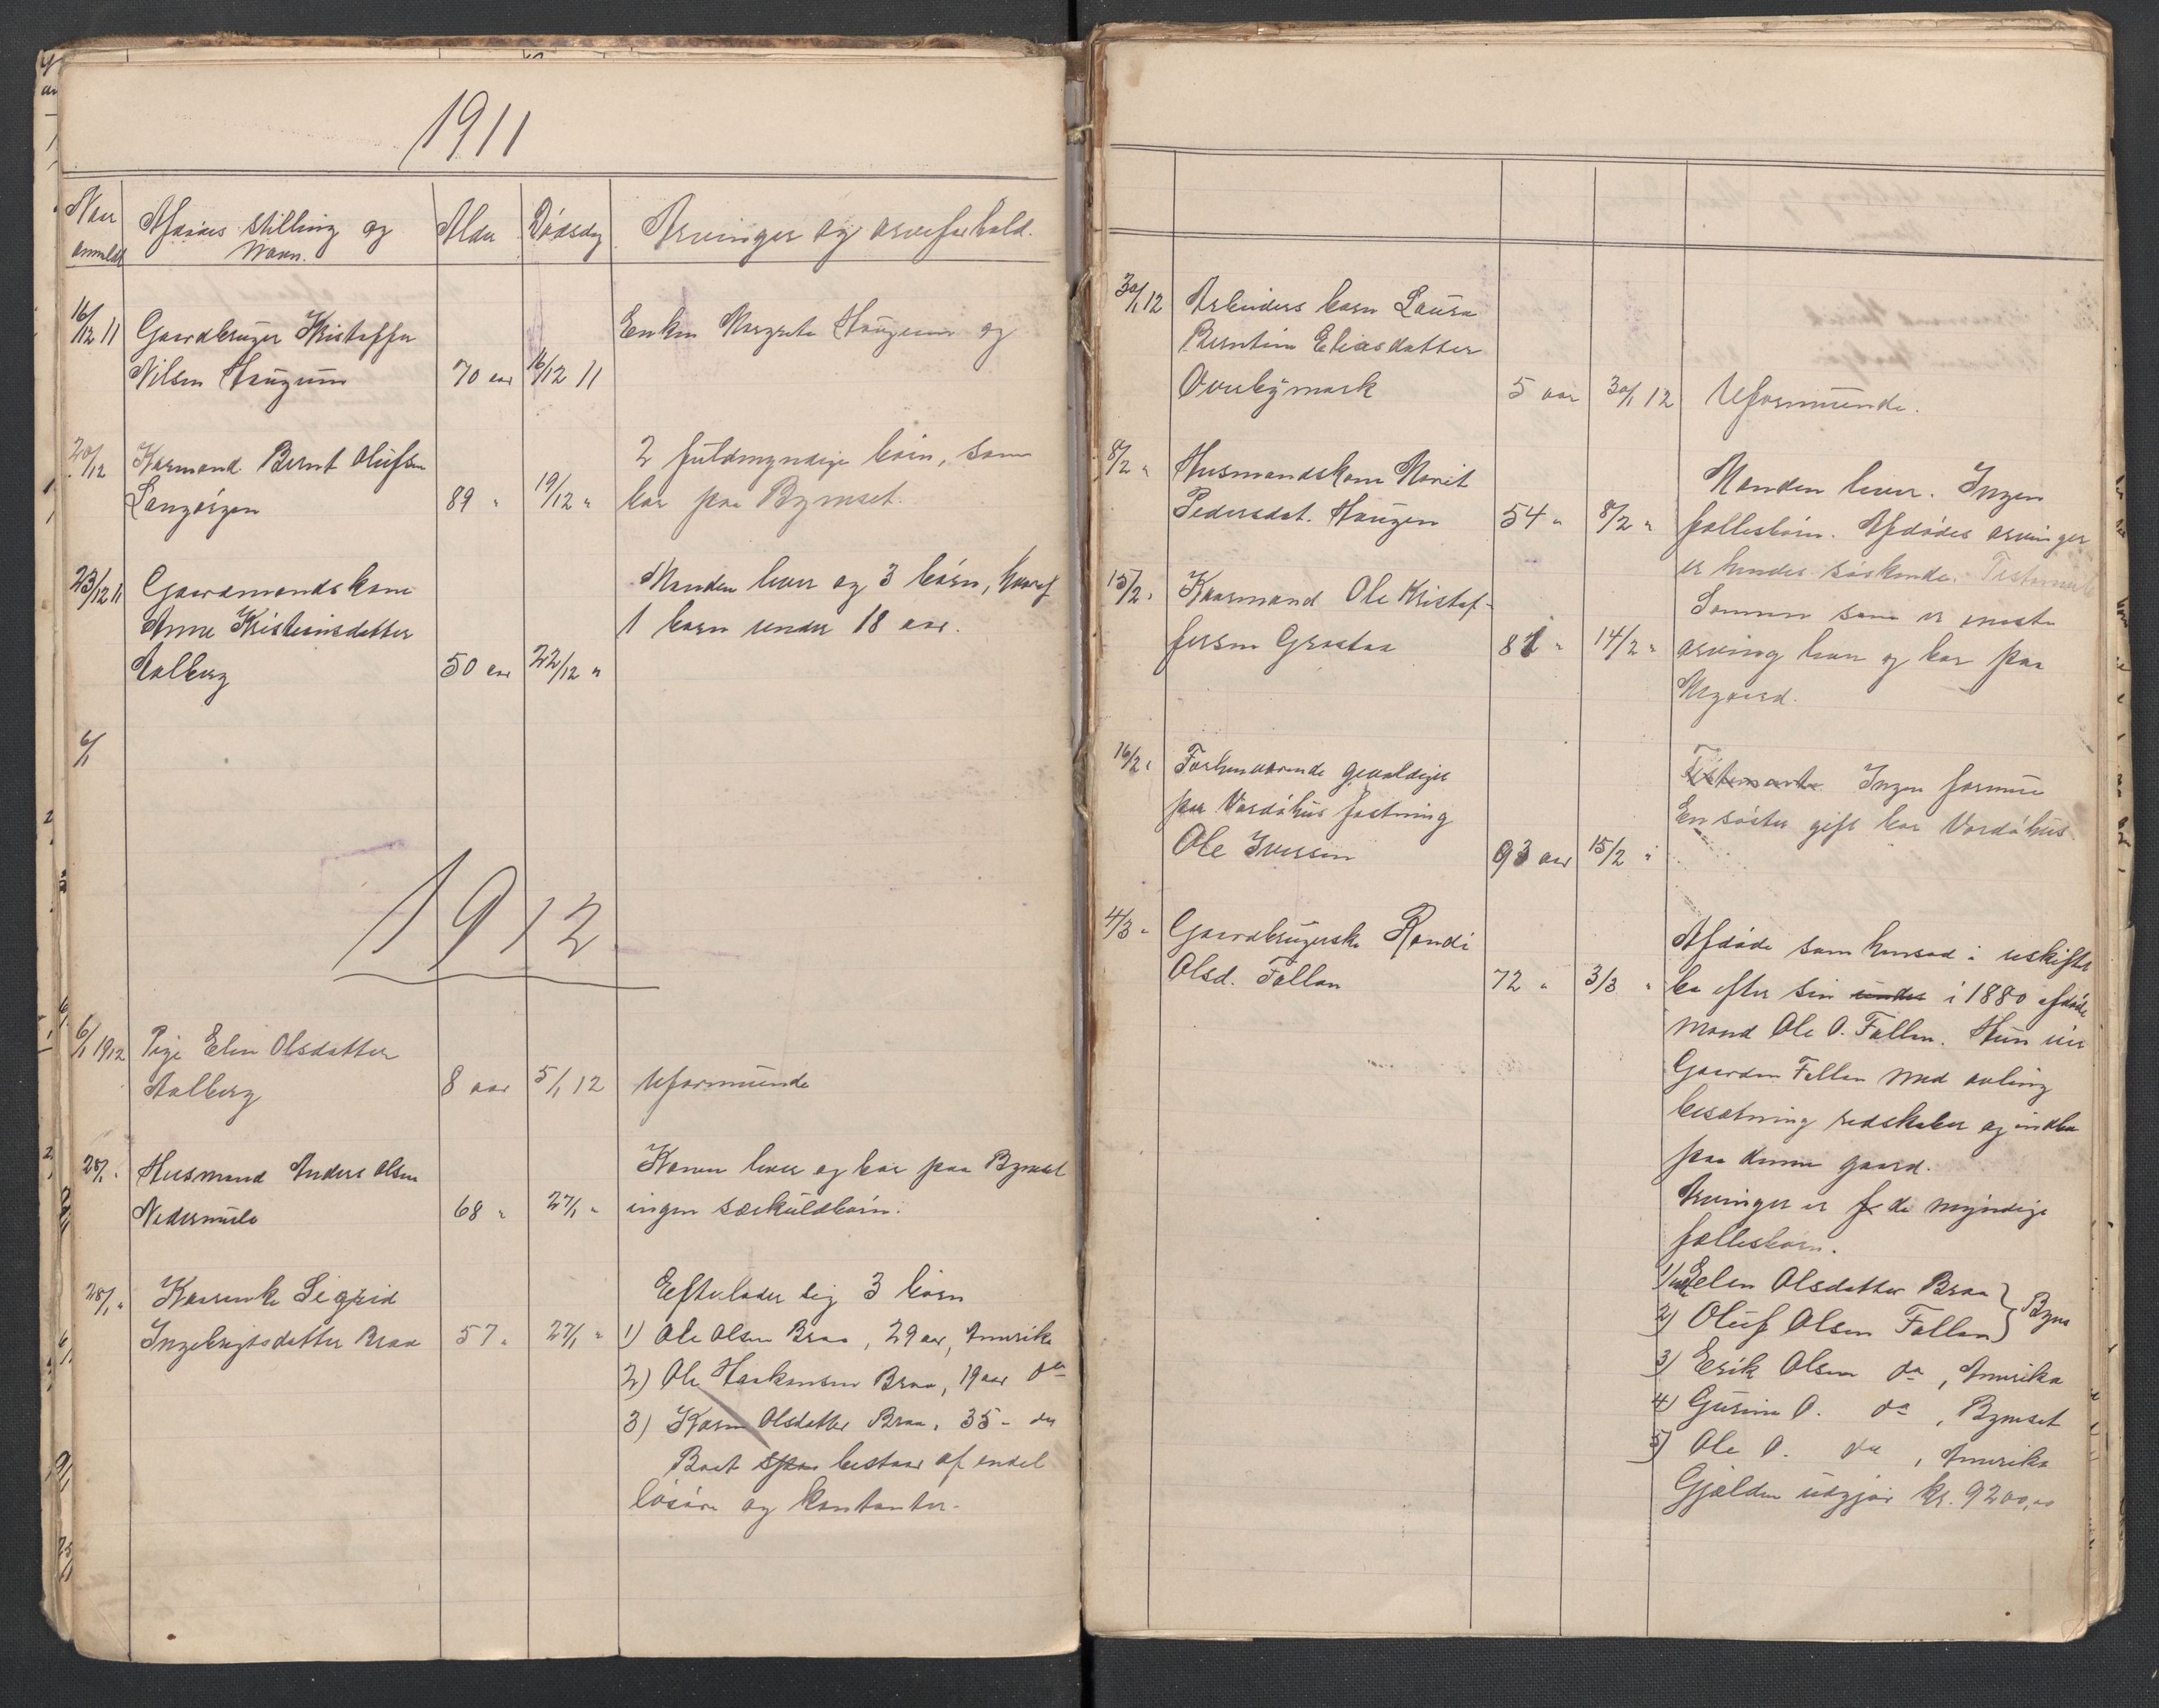 1911
Naar anmeldt
Afdødes stilling og Navn.
Alder
Dødsdag
Arvinger og arveforhold.
16/12 11
Gaardbruger Kristoffer
Nilsen Haugum
70 aar
16/12 11
Enken Margrete Haugum og
2 fuldmyndige børn, som
bor paa Byneset.
20/12
Kaarmand Bernt Olufsen
Langørgen
89 "
19/12 "
23/12 11
Gaardmandskone
Anne Kristiansdatter
Aalberg
50 aar
22/12 "
Manden lever og 3 børn, hvoraf
1 barn under 18 aar.
6/1
1912
6/1 1912
Pige Elen Olsdatter
Aalberg
8 aar
5/1 12
Uformuende
28/1 "
Husmand Anders Olsen
Nedermule
68 "
27/1 "
Konen lever og bor paa Byneset
ingen særkuldbørn.
28/1 "
Kaarenke Sigrid
Ingebrigtsdatter Braa
57 "
27/1 "
Efterlader sig 3 børn
1) Ole Olsen Braa, 29 aar, Amerika
2) Ole Haakonsen Braa, 19 aar do
3) Karen Olsdatter Braa, 35 - do
Boet bestaar af endel
løsøre og kontanter.
30/1 12
Arbeiders barn Laura
Berntine Eliasdatter
Overbymark
5 aar
30/1 12
Uformuende.
8/2 "
Husmandskone Marit
Pedersdat. Haugen
54 "
8/2 "
Manden lever. Ingen
fællesbørn. Afdødes arvinger
er hendes søskende. Testamente
15/2 "
Kaarmand Ole Kristof-
fersen Graataa
81 "
14/2 "
Sønnen som er eneste
arving lever og bor paa
Megaard.
16/2 "
Forhenværende gevaldiger
paa Vardøhus fæstning
Ole Iversen
93 aar
15/2 "
Testamente Ingen formue
En søster gift bor Vardøhus
4/3 "
Gaardbrugerske Randi
Olsd. Fallan
72 "
3/3 "
Afdøde som hensad i uskiftet
bo efter sin i 1880 afdøde
mand Ole O. Fallan. Hun eier
Gaarden Fallan med avling
besætning redskaber og indbo
paa denne gaard.
Arvinger er de myndige
fællesbørn.
1) Elen Olsdatter Braa } Byns
2) Oluf Olsen Fallan
3) Erik Olsen do, Amerika
4) Gurine O. do, Byneset
5) Ole O. do, Amerika
Gjælden udgjør kr. 9200,00